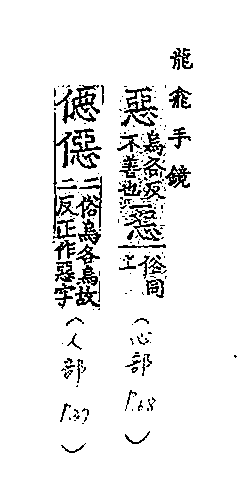 龍龕手鏡
惡烏各反不善也俗同上(心部 P.68)
僫二俗烏各烏故二反正作惡字(人部 P.37)